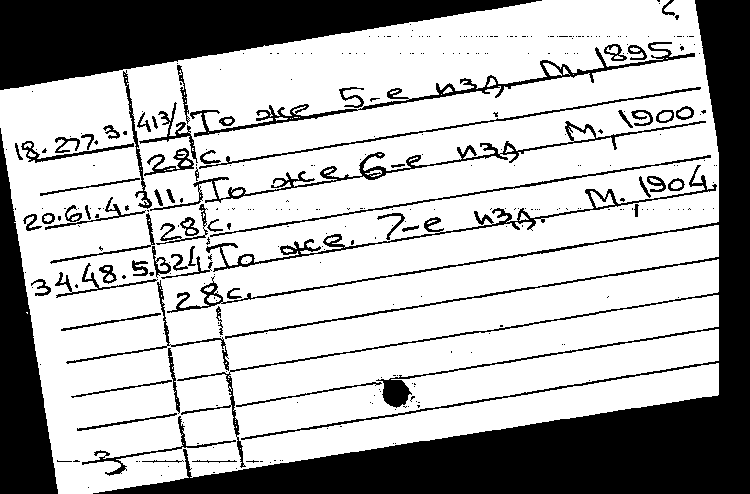 2.
18.277.3. 413/2 То же 5-е изд. М., 1895.
28 с.
20.61.4. 311. То же. 6-е изд. М., 1900.
28 с.
34.48.5. 324. То же. 7-е изд. М., 1904.
28 с.
3